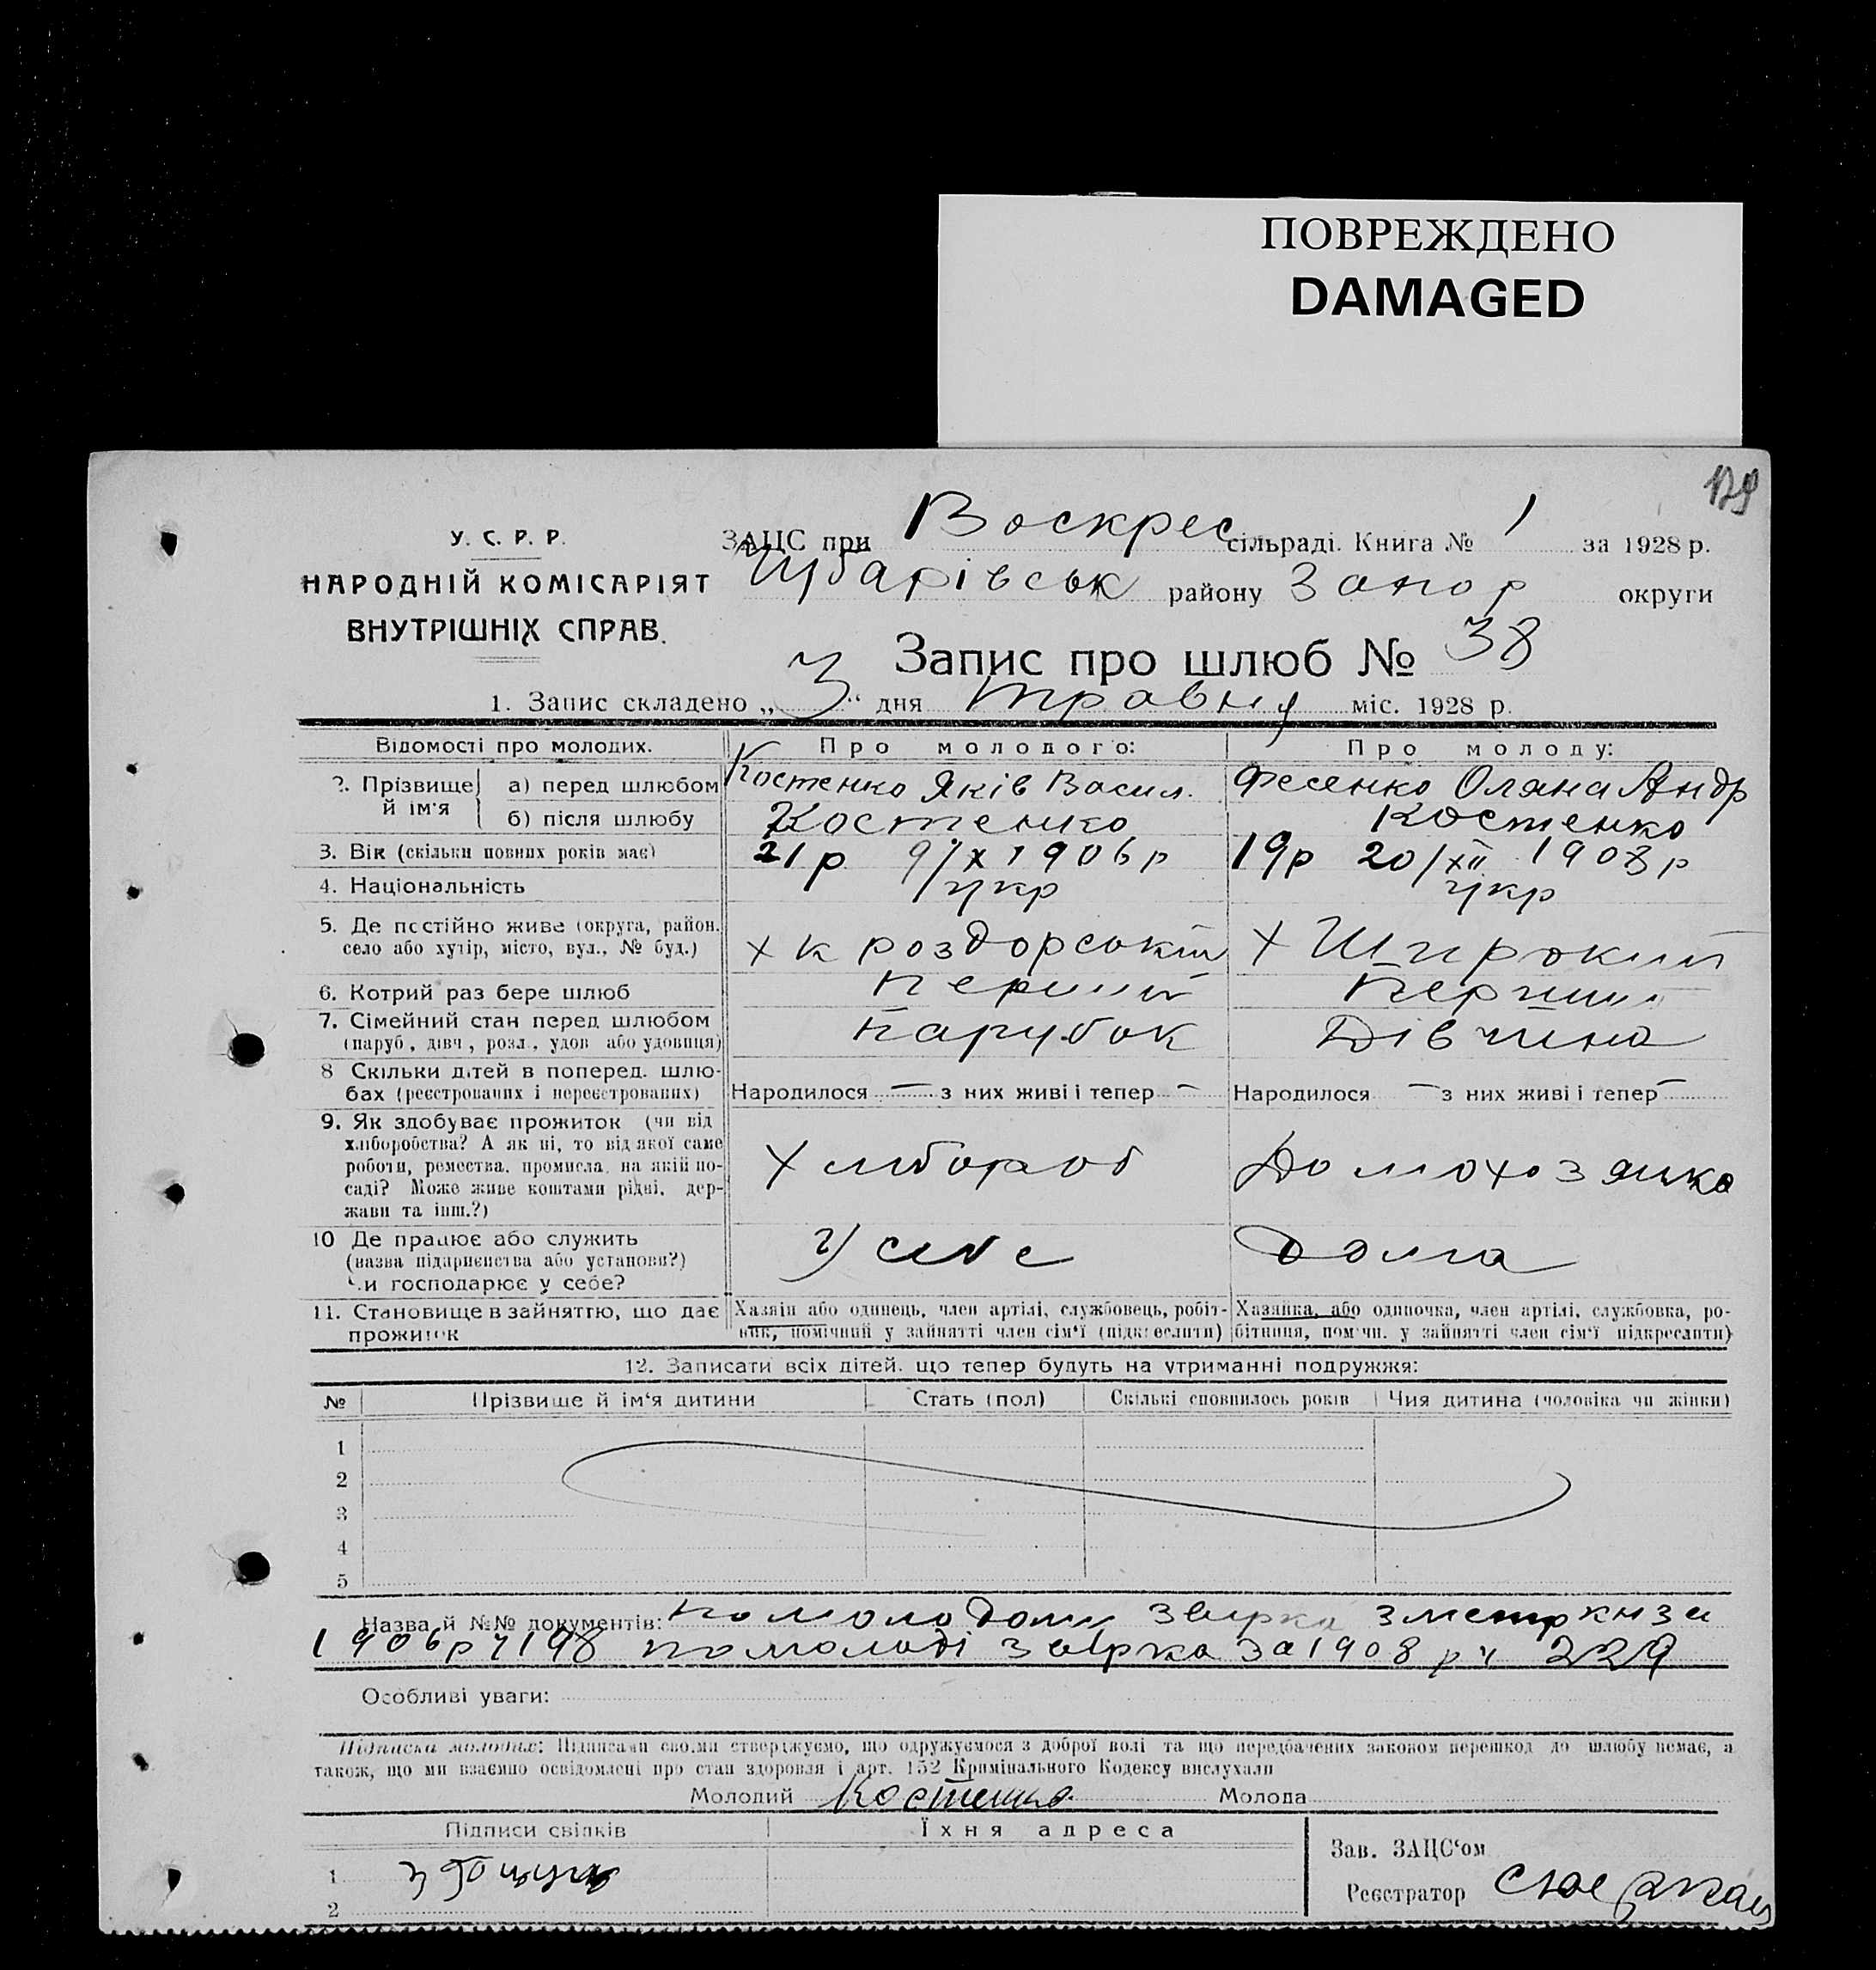 ПОВРЕЖДЕНО
DAMAGED
У. С. Р. Р.
НАРОДНІЙ КОМІСАРІЯТ
ВНУТРІШНІХ СПРАВ.
ЗАЦС при Воскрес сільраді. Книга № 1 за 1928 р.
Чубарівськ району Запор округи
Запис про шлюб № 38
1. Запис складено „3“ дня травня міс. 1928 р.
Відомості про молодих. Про молодого: Про молоду:
2. Прізвище й ім'я а) перед шлюбом Костенко Яків Васил. Фесенко Оляна Андр
б) після шлюбу Костенко Костенко
3. Вік (скільки повних років має) 21 р 9/X 1906 р 19 р 20/XII 1908 р
4. Національність укр укр
5. Де постійно живе (округа, район,
село або хутір, місто, вул., № буд.) х к роздорський х Широкий
6. Котрий раз бере шлюб перший перший
7. Сімейний стан перед шлюбом
(паруб., дівч., розл., удов. або удовиця) парубок Дівчина
8 Скільки дітей в поперед. шлю-
бах (реєстрованих і нереєстрованих) Народилося — з них живі і тепер — Народилося — з них живі і тепер —
9. Як здобуває прожиток (чи від
хліборобства? А як ні, то від якої саме
роботи, ремества, промисла, на якій по-
саді? Може живе коштами рідні, дер-
жави та інш.?) Хлібороб Домохозяйка
10 Де працює або служить
(назва підприємства або установи?)
Чи господарює у себе? У себе дома
11. Становище в зайняттю, що дає
прожиток
Хазяїн або одинець, член артілі, службовець, робіт-
ник, помічний у зайнятті член сім'ї (підкреслити)
Хазяйка, або одиночка, член артілі, службовка, ро-
бітниця, помічн. у зайнятті член сім'ї підкреслити)
12. Записати всіх дітей, що тепер будуть на утриманні подружжя:
№ Прізвище й ім'я дитини Стать (пол) Скількі сповнилось років Чия дитина (чоловіка чи жінки)
1
2
3
4
5
Назва й №№ документів: по молодому звірка з метр книги
1906 р ч 198 по молоді звірка за 1908 р ч 229
Особливі уваги:
Підписка молодих: Підписами своїми стверджуємо, що одружуємося з доброї волі та що передбачених законом перешкод до шлюбу немає, а
також, що ми взаємно освідомлені про стан здоровля і арт. 152 Кримінального Кодексу вислухали
Молодий Костенко Молода
Підписи свідків Їхня адреса
Зав. ЗАЦС'ом
1
Реєстратор
2